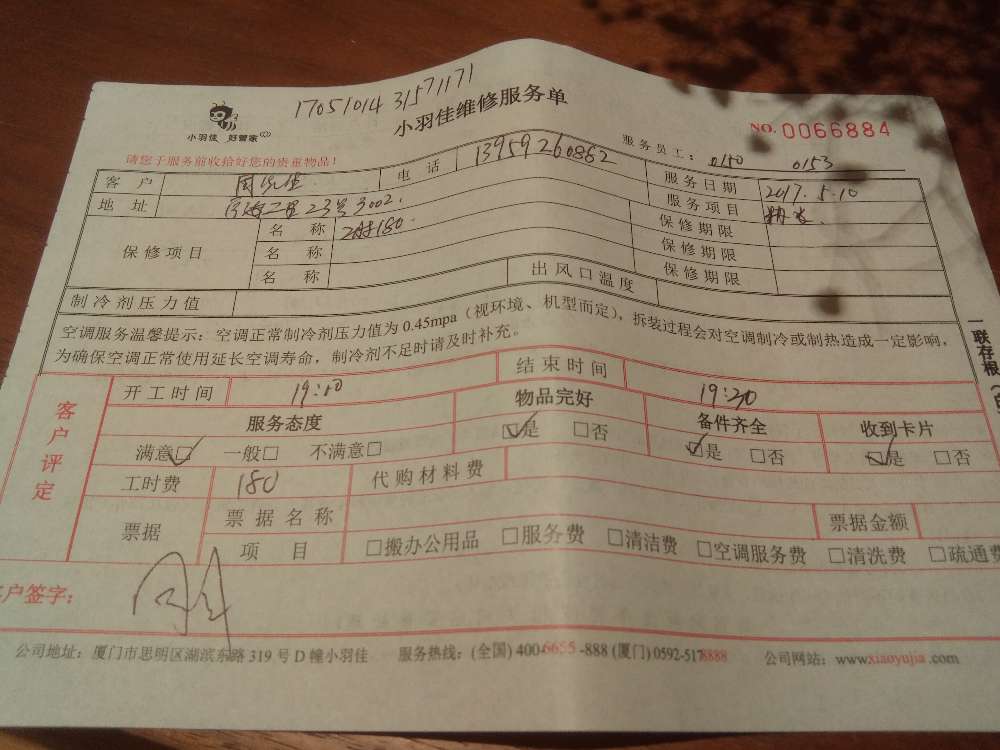 17051014 31571171
小羽佳 好管家
小羽佳维修服务单
NO. 0066884
请您于服务前收拾好您的贵重物品!
服务员工: 0150 0153
客户
电话 13959260862
服务日期 2017.5.10
地址 二里23号3002
服务项目
保修项目
名称 180
保修期限
名称
保修期限
名称
保修期限
制冷剂压力值
出风口温度
空调服务温馨提示: 空调正常制冷剂压力值为 0.45mpa (视环境、机型而定), 拆装过程会对空调制冷或制热造成一定影响,
为确保空调正常使用延长空调寿命, 制冷剂不足时请及时补充。
一联存根
客户评定
开工时间 19:10
结束时间 19:30
服务态度
物品完好
备件齐全
收到卡片
满意□ 一般□ 不满意□
□是 □否
□是 □否
□是 □否
工时费 180
代购材料费
票据
票据名称
票据金额
项目
□搬办公用品 □服务费 □清洁费 □空调服务费 □清洗费 □疏通费
户签字:
公司地址: 厦门市思明区湖滨东路 319 号 D 幢小羽佳 服务热线: (全国) 400-6655-888 (厦门) 0592-5178888 公司网站: www.xiaoyujia.com